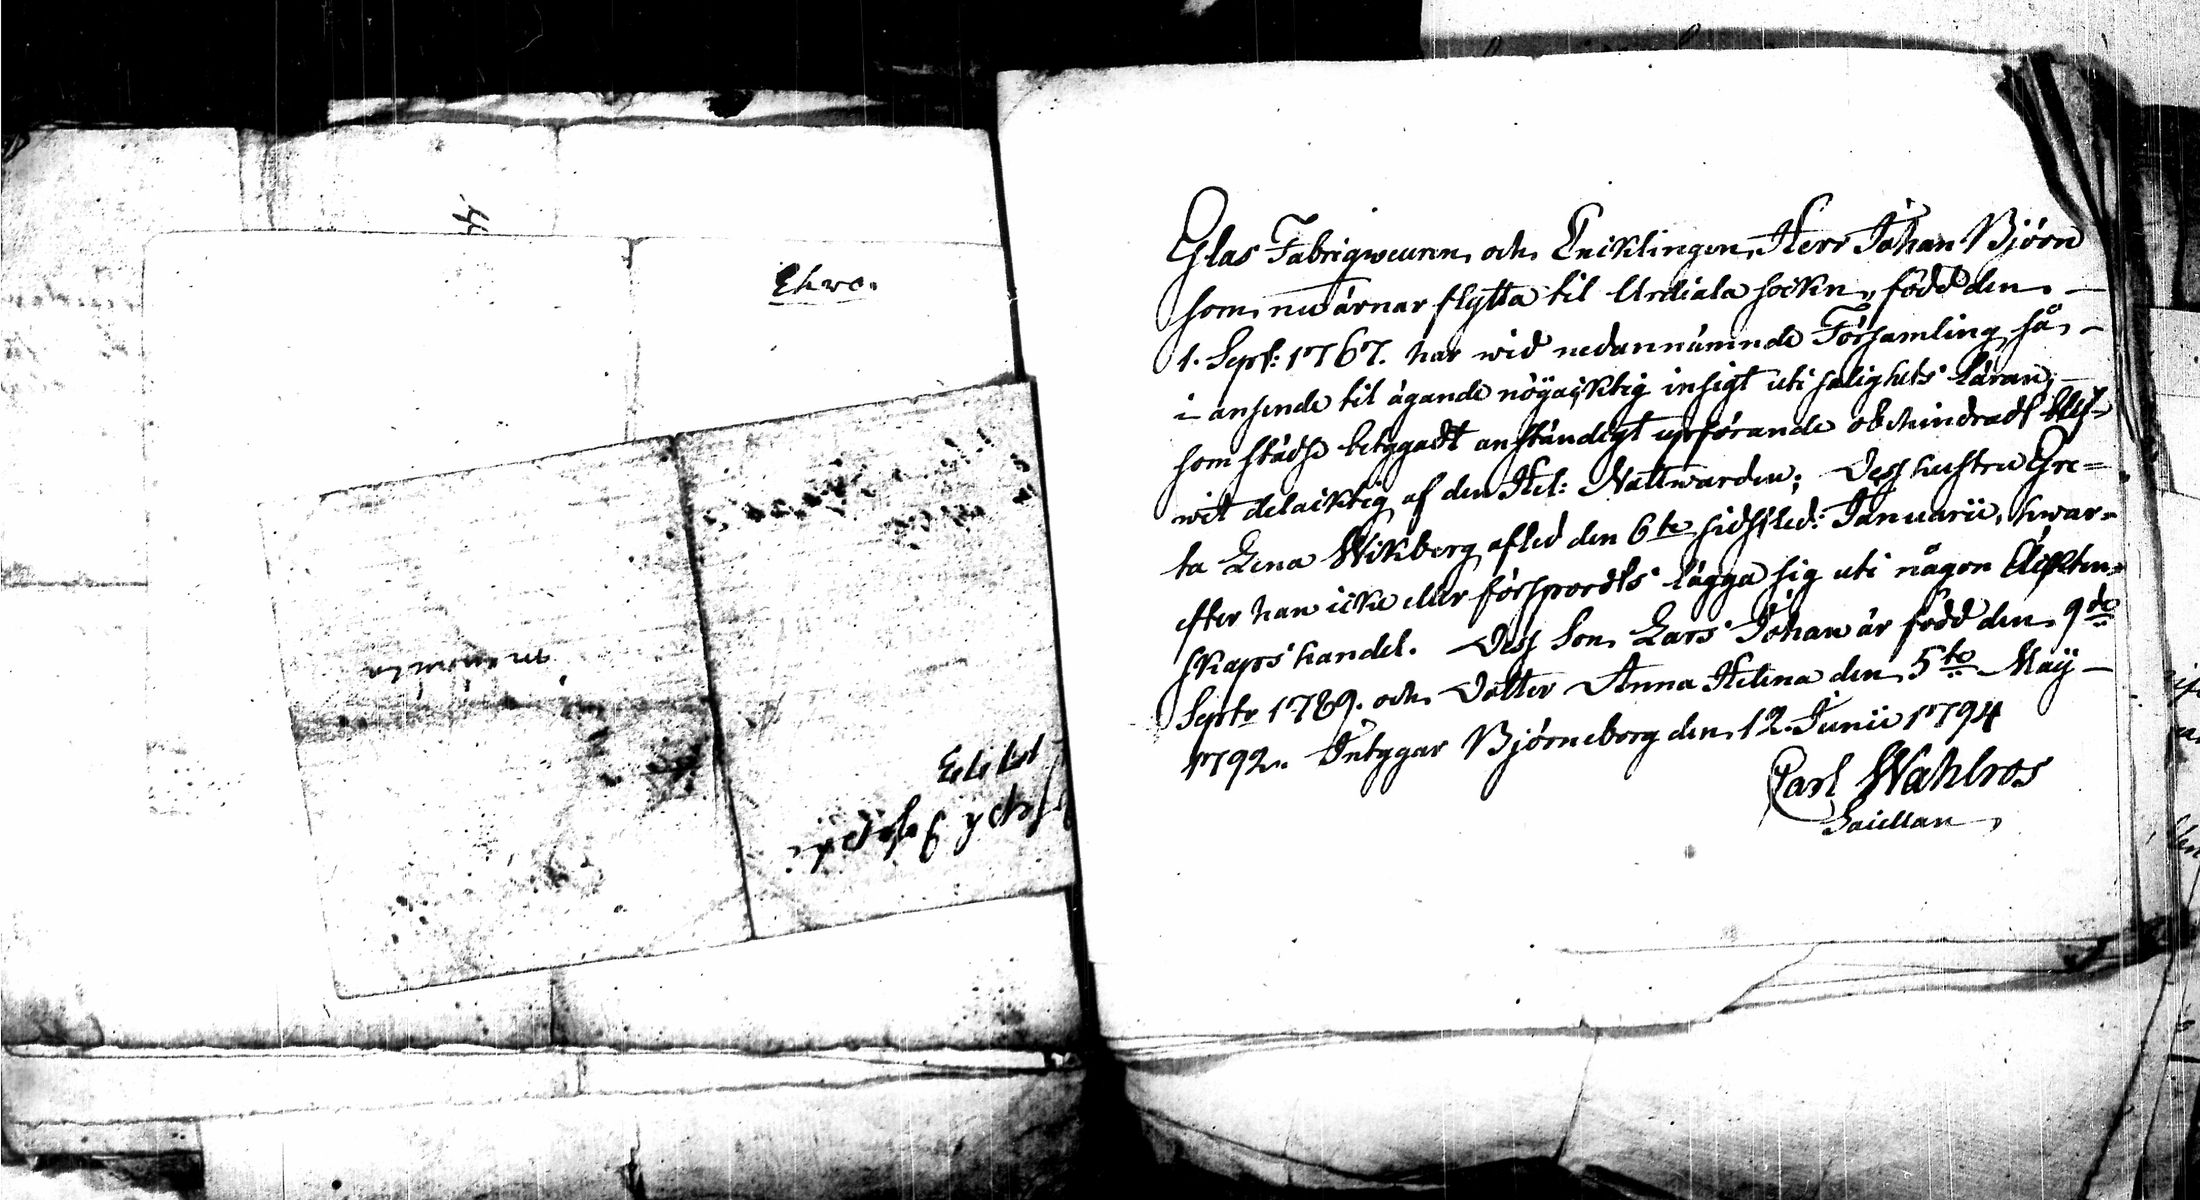 Ehro.
Glas Fabriqweuren och Enklingen, Herr Johan Björn
som nu ärnar flytta til Urdiala sockn, född den
1. Sept: 1767. har wid nedannämnde Församling, så
i anseende til ägande nöyacktig insigt uti salighets läran,
som städse betygadt anständigt upförande obehindradt blif-
wit delacktig af den Hel: Nattwarden; Dess hustru Gre=
ta Lena Wikberg afled den 6te sidstled: Januarii, hwar-
efter han icke eller förspordts lägga sig uti någon Äckten-
skapshandel. Dess Son Lars Johan är född den 9de
Septr 1789. och Dotter Anna Helena den 5te Maÿ
1792. Intygar Björneborg den 12. Junii 1794
Carl Wahlros